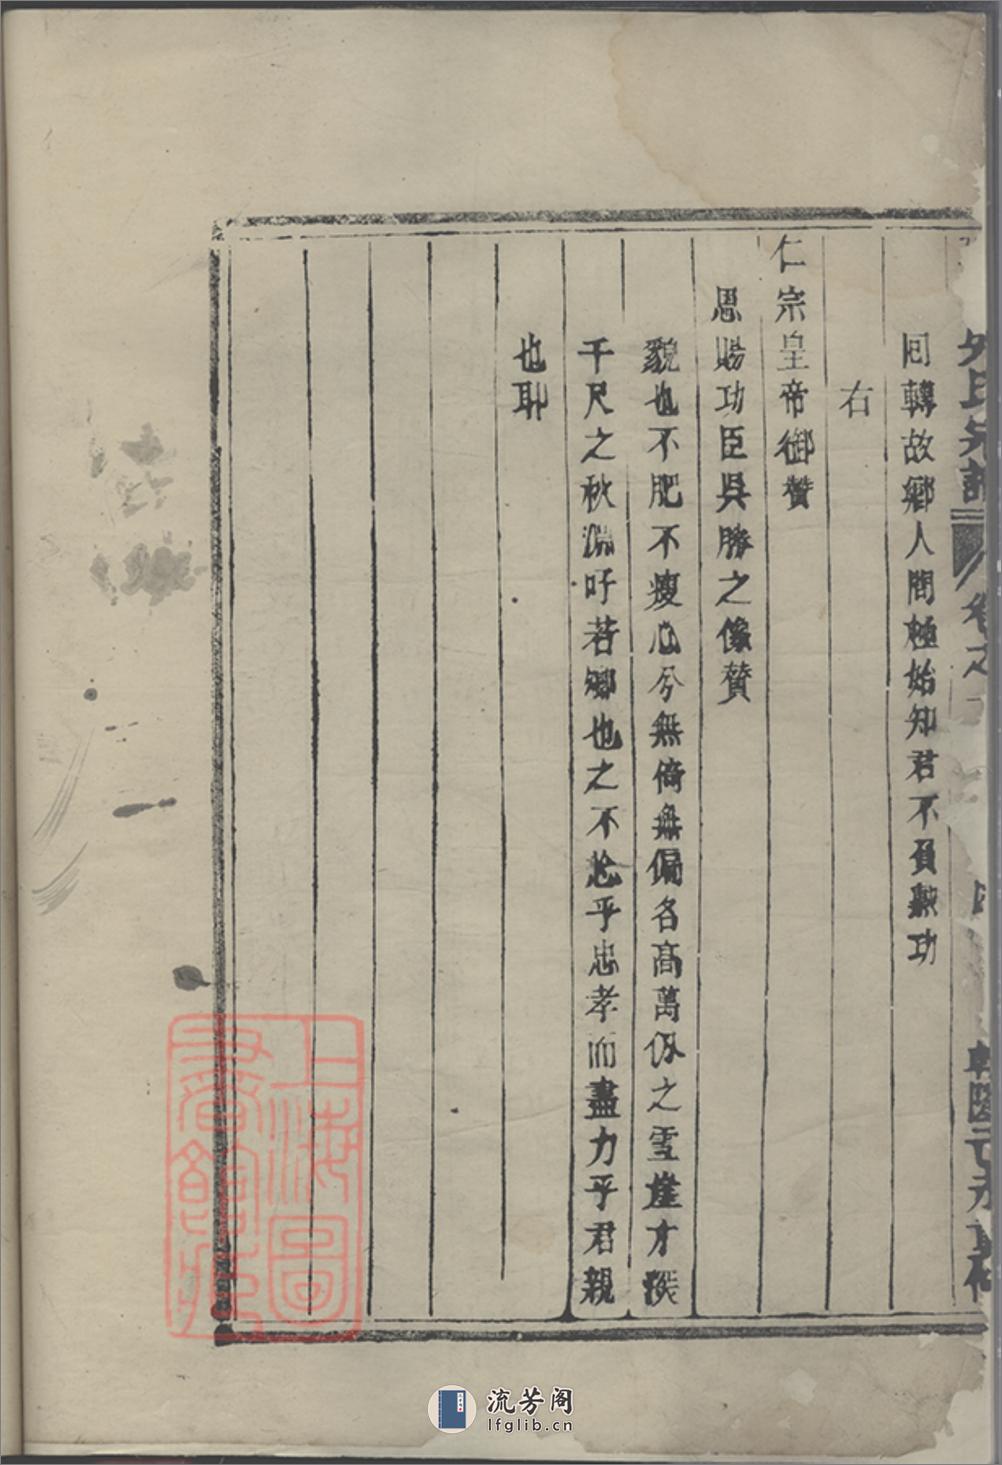 氏宗譜 卷之
回轉故鄉人間極始知君不負勲功
右
仁宗皇帝御贊
恩賜功臣吳勝之像贊
貌也不肥不瘦心兮無倚無偏名高萬仭之雪崖才
千尺之秋淵吁若卿也之不忝乎忠孝而盡力乎君親
也耶
上海圖書館藏
流芳阁
lfglib.cn